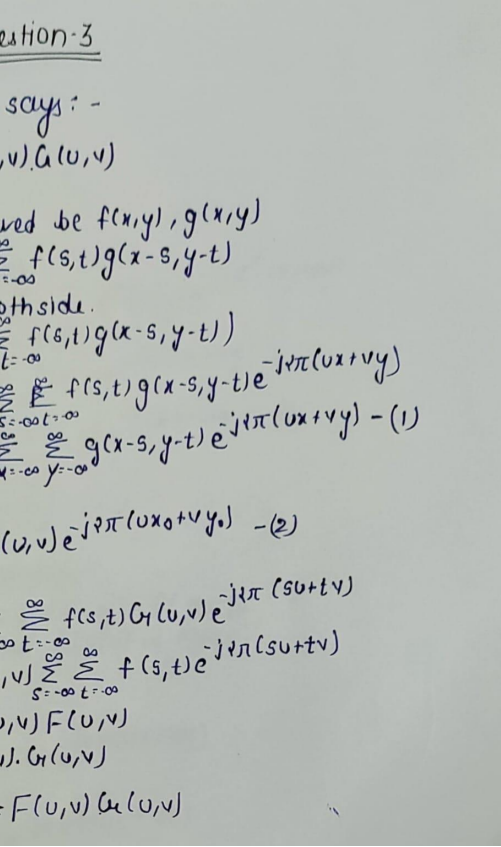 estion-3
says:-
,v).G(u,v)
ved be f(x,y), g(x,y)
∞ Σ t=-∞ f(s,t)g(x-s,y-t)
othside.
∞ Σ t=-∞ f(s,t)g(x-s,y-t))
∞ Σ s=-∞ ∞ Σ t=-∞ f(s,t)g(x-s,y-t)e^-j2π(ux+vy)
∞ Σ x=-∞ ∞ Σ y=-∞ g(x-s,y-t)e^-j2π(ux+vy) -(1)
(u,v)e^-j2π(ux₀+vy₀) -(2)
∞ ∞ Σ t=-∞ f(s,t)G(u,v)e^-j2π(su+tv)
,v) ∞ Σ s=-∞ ∞ Σ t=-∞ f(s,t)e^-j2π(su+tv)
u,v)F(u,v)
). G(u,v)
= F(u,v)G(u,v)